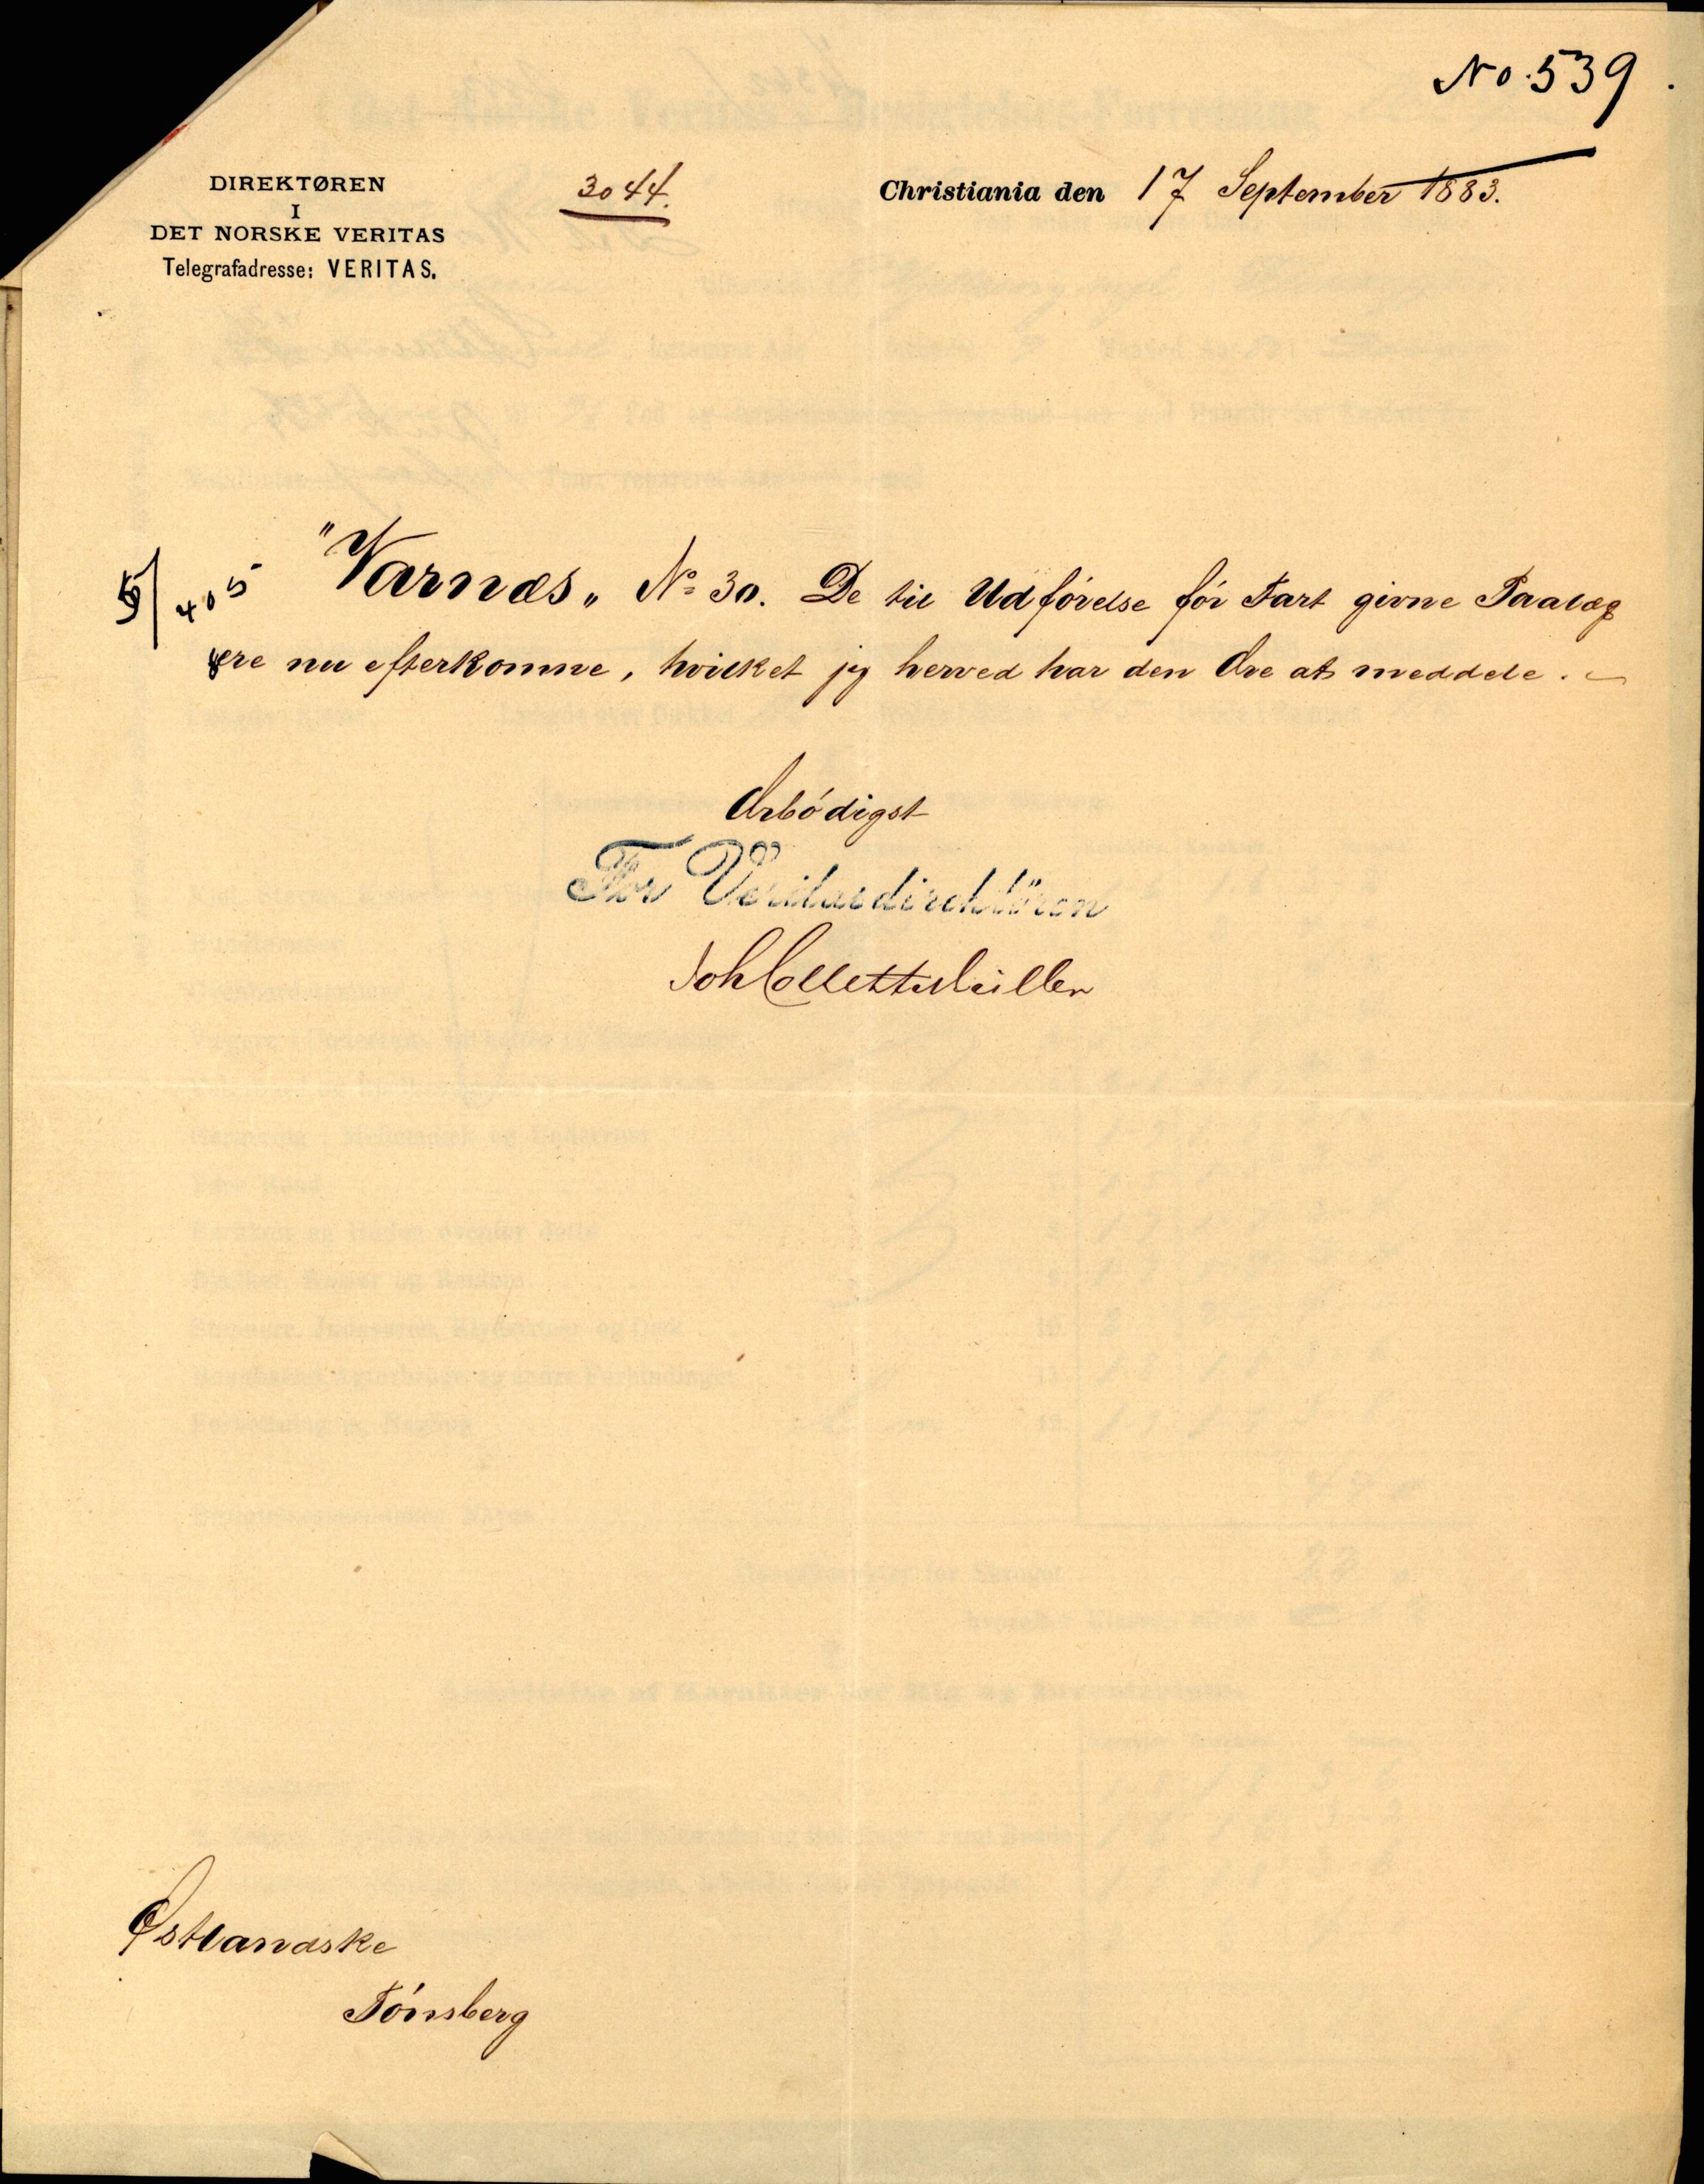 No. 539.
DIREKTØREN
I
DET NORSKE VERITAS
Telegrafadresse: VERITAS.
3044.
Christiania den 17 September 1883.
405 "Varnæs" No 30. De til Udførelse før Fart givne Paalæg
ere nu efterkomne, hvilket jeg herved har den Ære at meddele.
Ærbødigst
For Veritasdirektören
Joh Collett Müller
Østlandske
Tönsberg